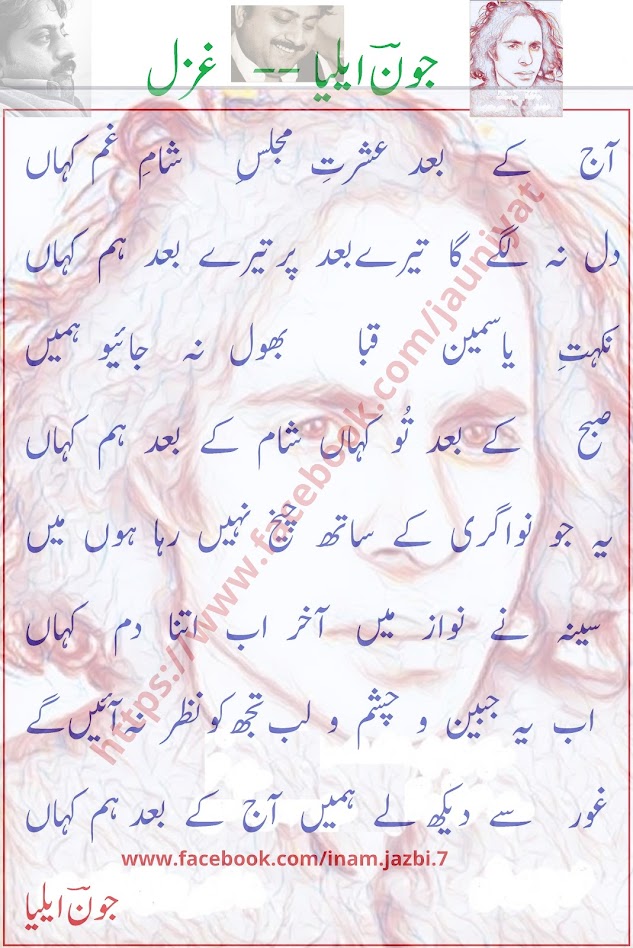 جونؔ ایلیا -- غزل
آج کے بعد عشرتِ مجلسِ شامِ غم کہاں
دل نہ لگے گا تیرے بعد پر تیرے بعد ہم کہاں
نکہتِ یاسمین قبا بھول نہ جائیو ہمیں
صبح کے بعد تُو کہاں شام کے بعد ہم کہاں
یہ جو نواگری کے ساتھ چیخ نہیں رہا ہوں میں
سینہ نے نواز میں آخر اب اتنا دم کہاں
اب یہ جبین و چشم و لب تجھ کو نظر نہ آئیں گے
غور سے دیکھ لے ہمیں آج کے بعد ہم کہاں
www.facebook.com/inam.jazbi.7
جونؔ ایلیا
https://www.facebook.com/jauniyat